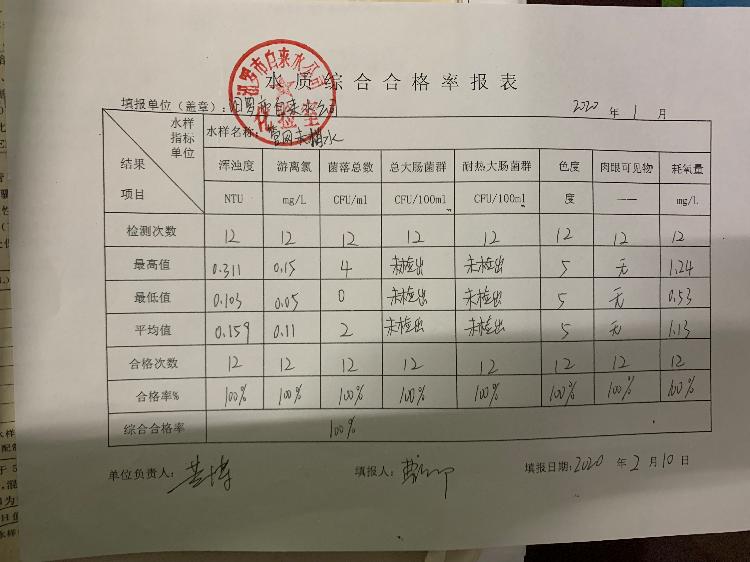 水质综合合格率报表
汨罗市自来水公司
化验室
填报单位（盖章）：汨罗市自来水公司 2020 年 1 月
水样 指标 单位 结果 项目 水样名称：管网末梢水
浑浊度 游离氯 菌落总数 总大肠菌群 耐热大肠菌群 色度 肉眼可见物 耗氧量
NTU mg/L CFU/ml CFU/100ml CFU/100ml 度 —— mg/L
检测次数 12 12 12 12 12 12 12 12
最高值 0.311 0.15 4 未检出 未检出 5 无 1.24
最低值 0.103 0.05 0 未检出 未检出 5 无 0.53
平均值 0.159 0.11 2 未检出 未检出 5 无 1.13
合格次数 12 12 12 12 12 12 12 12
合格率% 100% 100% 100% 100% 100% 100% 100% 100%
综合合格率 100%
单位负责人： 填报人： 填报日期：2020 年 2 月 10 日